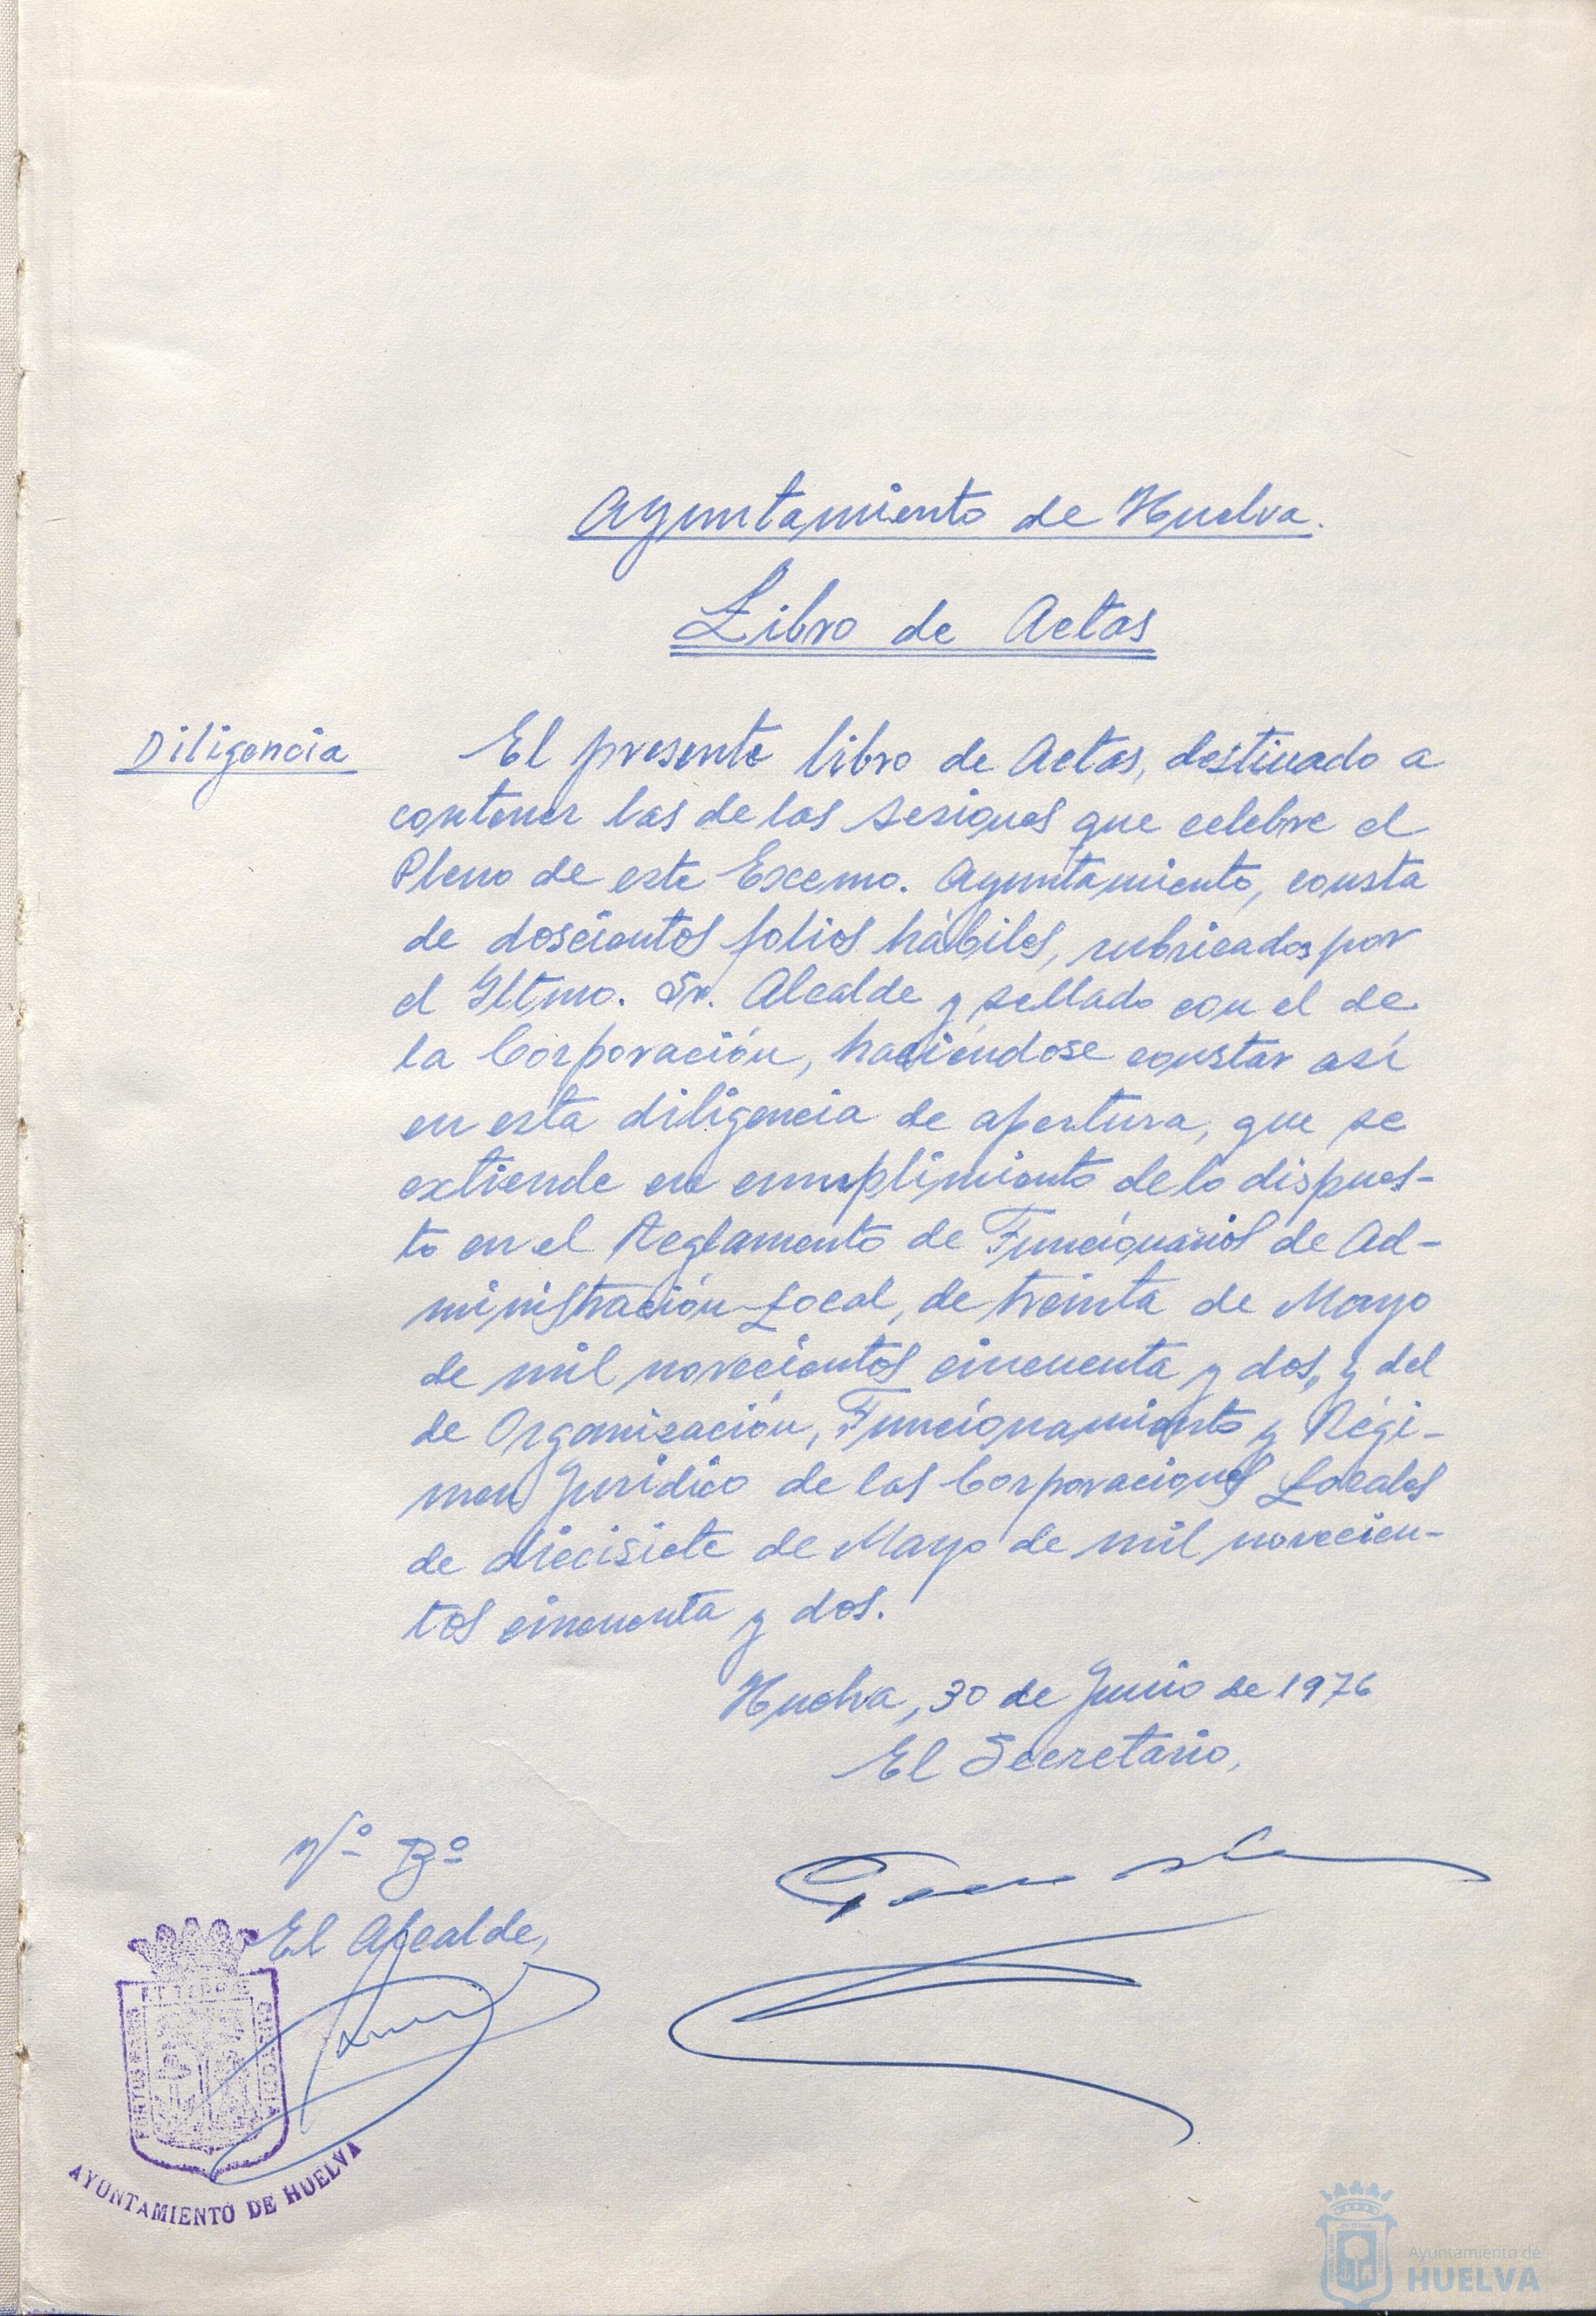 Ayuntamiento de Huelva.
Libro de Actas
Diligencia
El presente libro de Actas, destinado a
contener las de las sesiones que celebre el
Pleno de este Excmo. Ayuntamiento, consta
de doscientos folios hábiles, rubricados por
el Iltmo. Sr. Alcalde y sellado con el de
la Corporación, haciéndose constar así
en esta diligencia de apertura, que se
extiende en cumplimiento de lo dispues-
to en el Reglamento de Funcionarios de Ad-
ministración Local, de treinta de Mayo
de mil novecientos cincuenta y dos, y del
de Organización, Funcionamiento y Régi-
men Jurídico de las Corporaciones Locales
de diecisiete de Mayo de mil novecien-
tos cincuenta y dos.
Huelva, 30 de Junio de 1976
El Secretario,
Vº Bº
El Alcalde,
PORTUS MARIS
ET TERRE
CUSTODIA
AYUNTAMIENTO DE HUELVA
Ayuntamiento de
HUELVA